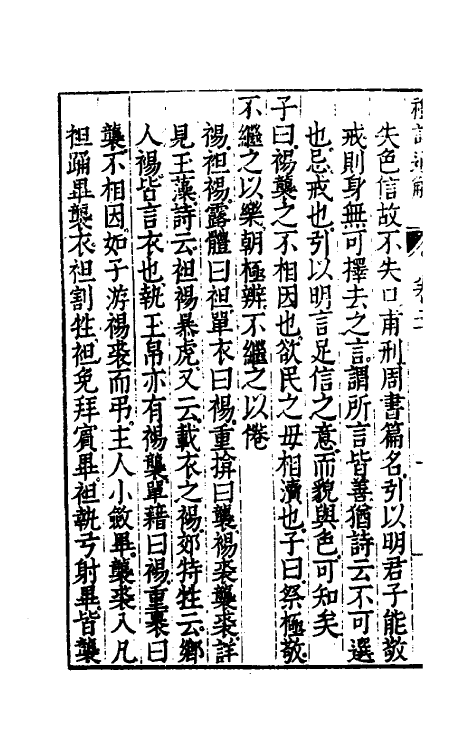 禮記通解 卷二
失色信故不失口甫刑周書篇名引以明君子能敬
戒則身無可擇去之言謂所言皆善猶詩云不可選
也忌戒也引以明言足信之意而貌與色可知矣
子曰裼襲之不相因也欲民之毋相瀆也子曰祭極敬
不繼之以樂朝極辨不繼之以倦
裼袒裼露體曰袒單衣曰裼重揜曰襲裼裘襲裘詳
見玉藻詩云袒裼暴虎又云載衣之裼郊特牲云鄉
人裼皆言衣也執玉帛亦有裼襲單藉曰裼重裹曰
襲不相因如子游裼裘而弔主人小斂畢襲裘入凡
袒踊畢襲衣袒割牲袒免拜賓畢袒執弓射畢皆襲